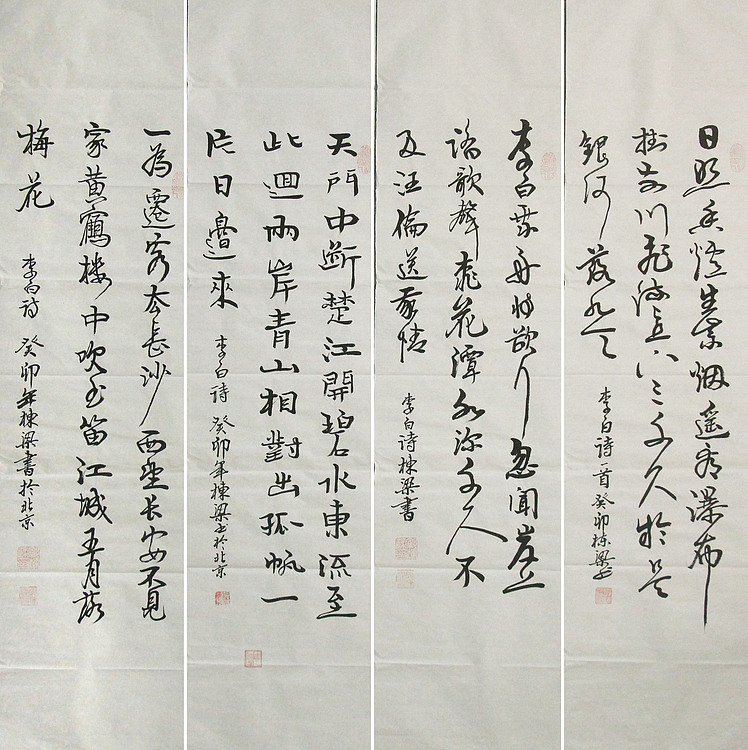 日照香爐生紫烟遥看瀑布
掛前川飛流直下三千尺疑是
銀河落九天
李白诗一首癸卯栋梁书
李白乘舟将欲行忽聞岸上
踏歌聲桃花潭水深千尺不
及汪倫送我情
李白诗棟梁書
天門中斷楚江開碧水東流至
此迴兩岸青山相對出孤帆一
片日邊來
李白诗 癸卯年棟梁书於北京
一為遷客去長沙西望长安不見
家黄鶴樓中吹玉笛江城五月落
梅花
李白诗 癸卯年棟梁書於北京